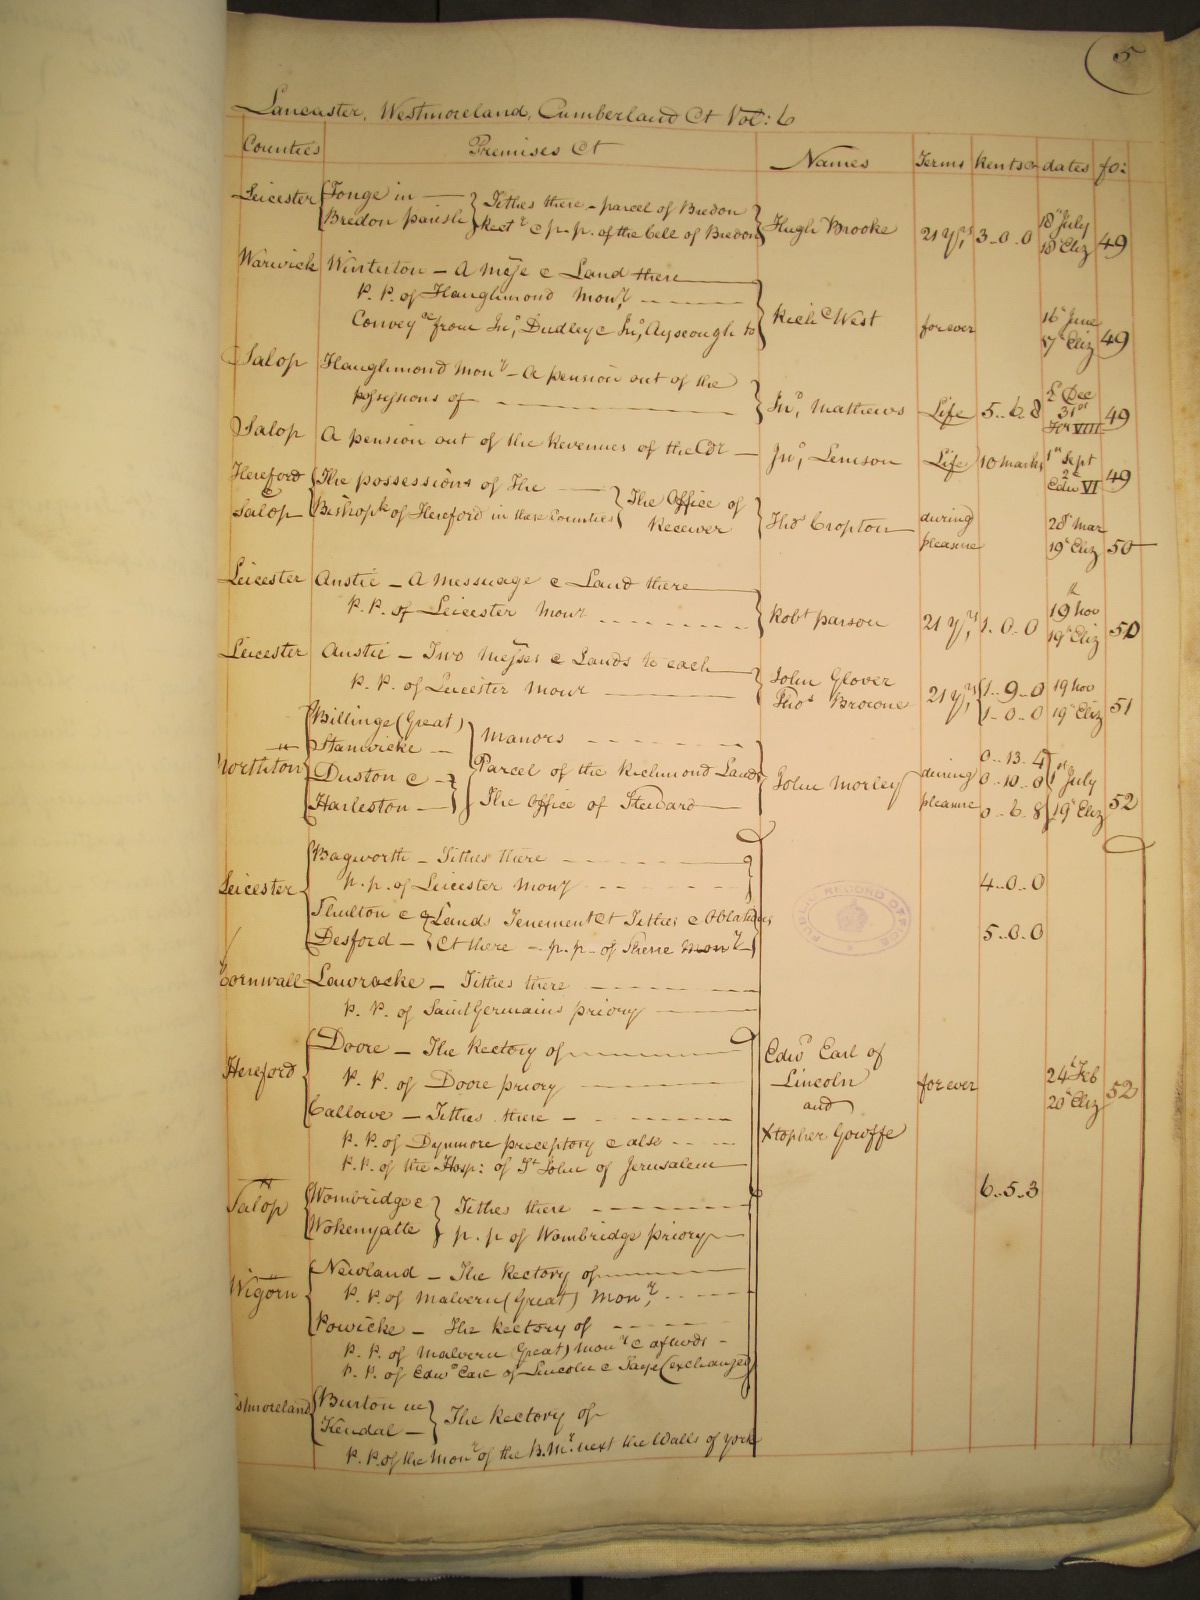 5
Lancaster, Westmoreland, Cumberland &c Vol: 6
Counties Premises &c Names Terms Rents &c dates fo:
Leicester Tonge in Tithes there - parcel of Bredon
Bredon parish Rect.r & p.p. of the cell of Bredon Hugh Brooke 21 y.rs 3..0..0 18th July 18th Eliz 49
Warwick Winterton - A Messe & Land there
P.P. of Haughmond Mon.y
Convey.ce from Jn.o Dudley & Jn.o Ayscough to Rich.d West for ever 16th June 17th Eliz 49
Salop Haughmond Mon.y - A pension out of the
possessions of Jn.o Mathews Life 5..6..8 2d Dec 31st Hen VIII 49
Salop A pension out of the Revenues of the Jn.o Leveson Life 10 marks 1st Sept 2d Edw VI 49
Hereford The possessions of The The Office of
&
Salop Bishopk of Hereford in these Counties Receiver Tho.s Cropton during pleasure 28th Mar 19th Eliz 50
Leicester Anstie - A Messuage & Land there
P.P. of Leicester Mon.y Rob.t parson 21 y.rs 1..0..0 19th Nov 19th Eliz 50
Leicester Anstie - Two Messes & Lands to each
P.P. of Leicester Mon.y John Glover Tho.s Browne 21 y.rs 1..9..0 1..0..0 19 Nov 19th Eliz 51
Billinge (Great)
Stanwicke Manors
Northton Parcel of the Richmond Lands John Morley during pleasure 0..13..4 0..10..0 0..6..8 1st July 19th Eliz 52
Duston &
Harleston The Office of Steward
Bagworth - Tithes there
Leicester p.p. of Leicester Mony 4..0..0
Thulton & Lands Tenement &c Tithes & Oblations
Desford &c there - p.p. of Shene Mon.y 5..0..0
Cornwall Lawracke - Tithes there
P.P. of Saint Germains priory
Doore - The Rectory of
Hereford P.P. of Doore priory
Callowe - Tithes there
P.P. of Dynmore preceptory & also
P.P. of the Hosp: of St John of Jerusalem
Edw.d Earl of
Lincoln
and
Xtopher Gowffe for ever 24th Feb 20th Eliz 52
Salop Wombridge & Tithes there 6..5..3
Wokenyatte p.p of Wombridge priory
Newland - The Rectory of
Wigorn P.P. of Malvern (Great) Mon.y
Powicke - The Rectory of
P.P. of Malvern (Great) Mon.y & afwds
P.P. of Edw.d Earl of Lincoln & Saye (exchanged)
stmoreland Burton in The Rectory of
Kendal
P.P. of the Mon.y of the B.M.y next the Walls of york
PUBLIC RECORD OFFICE